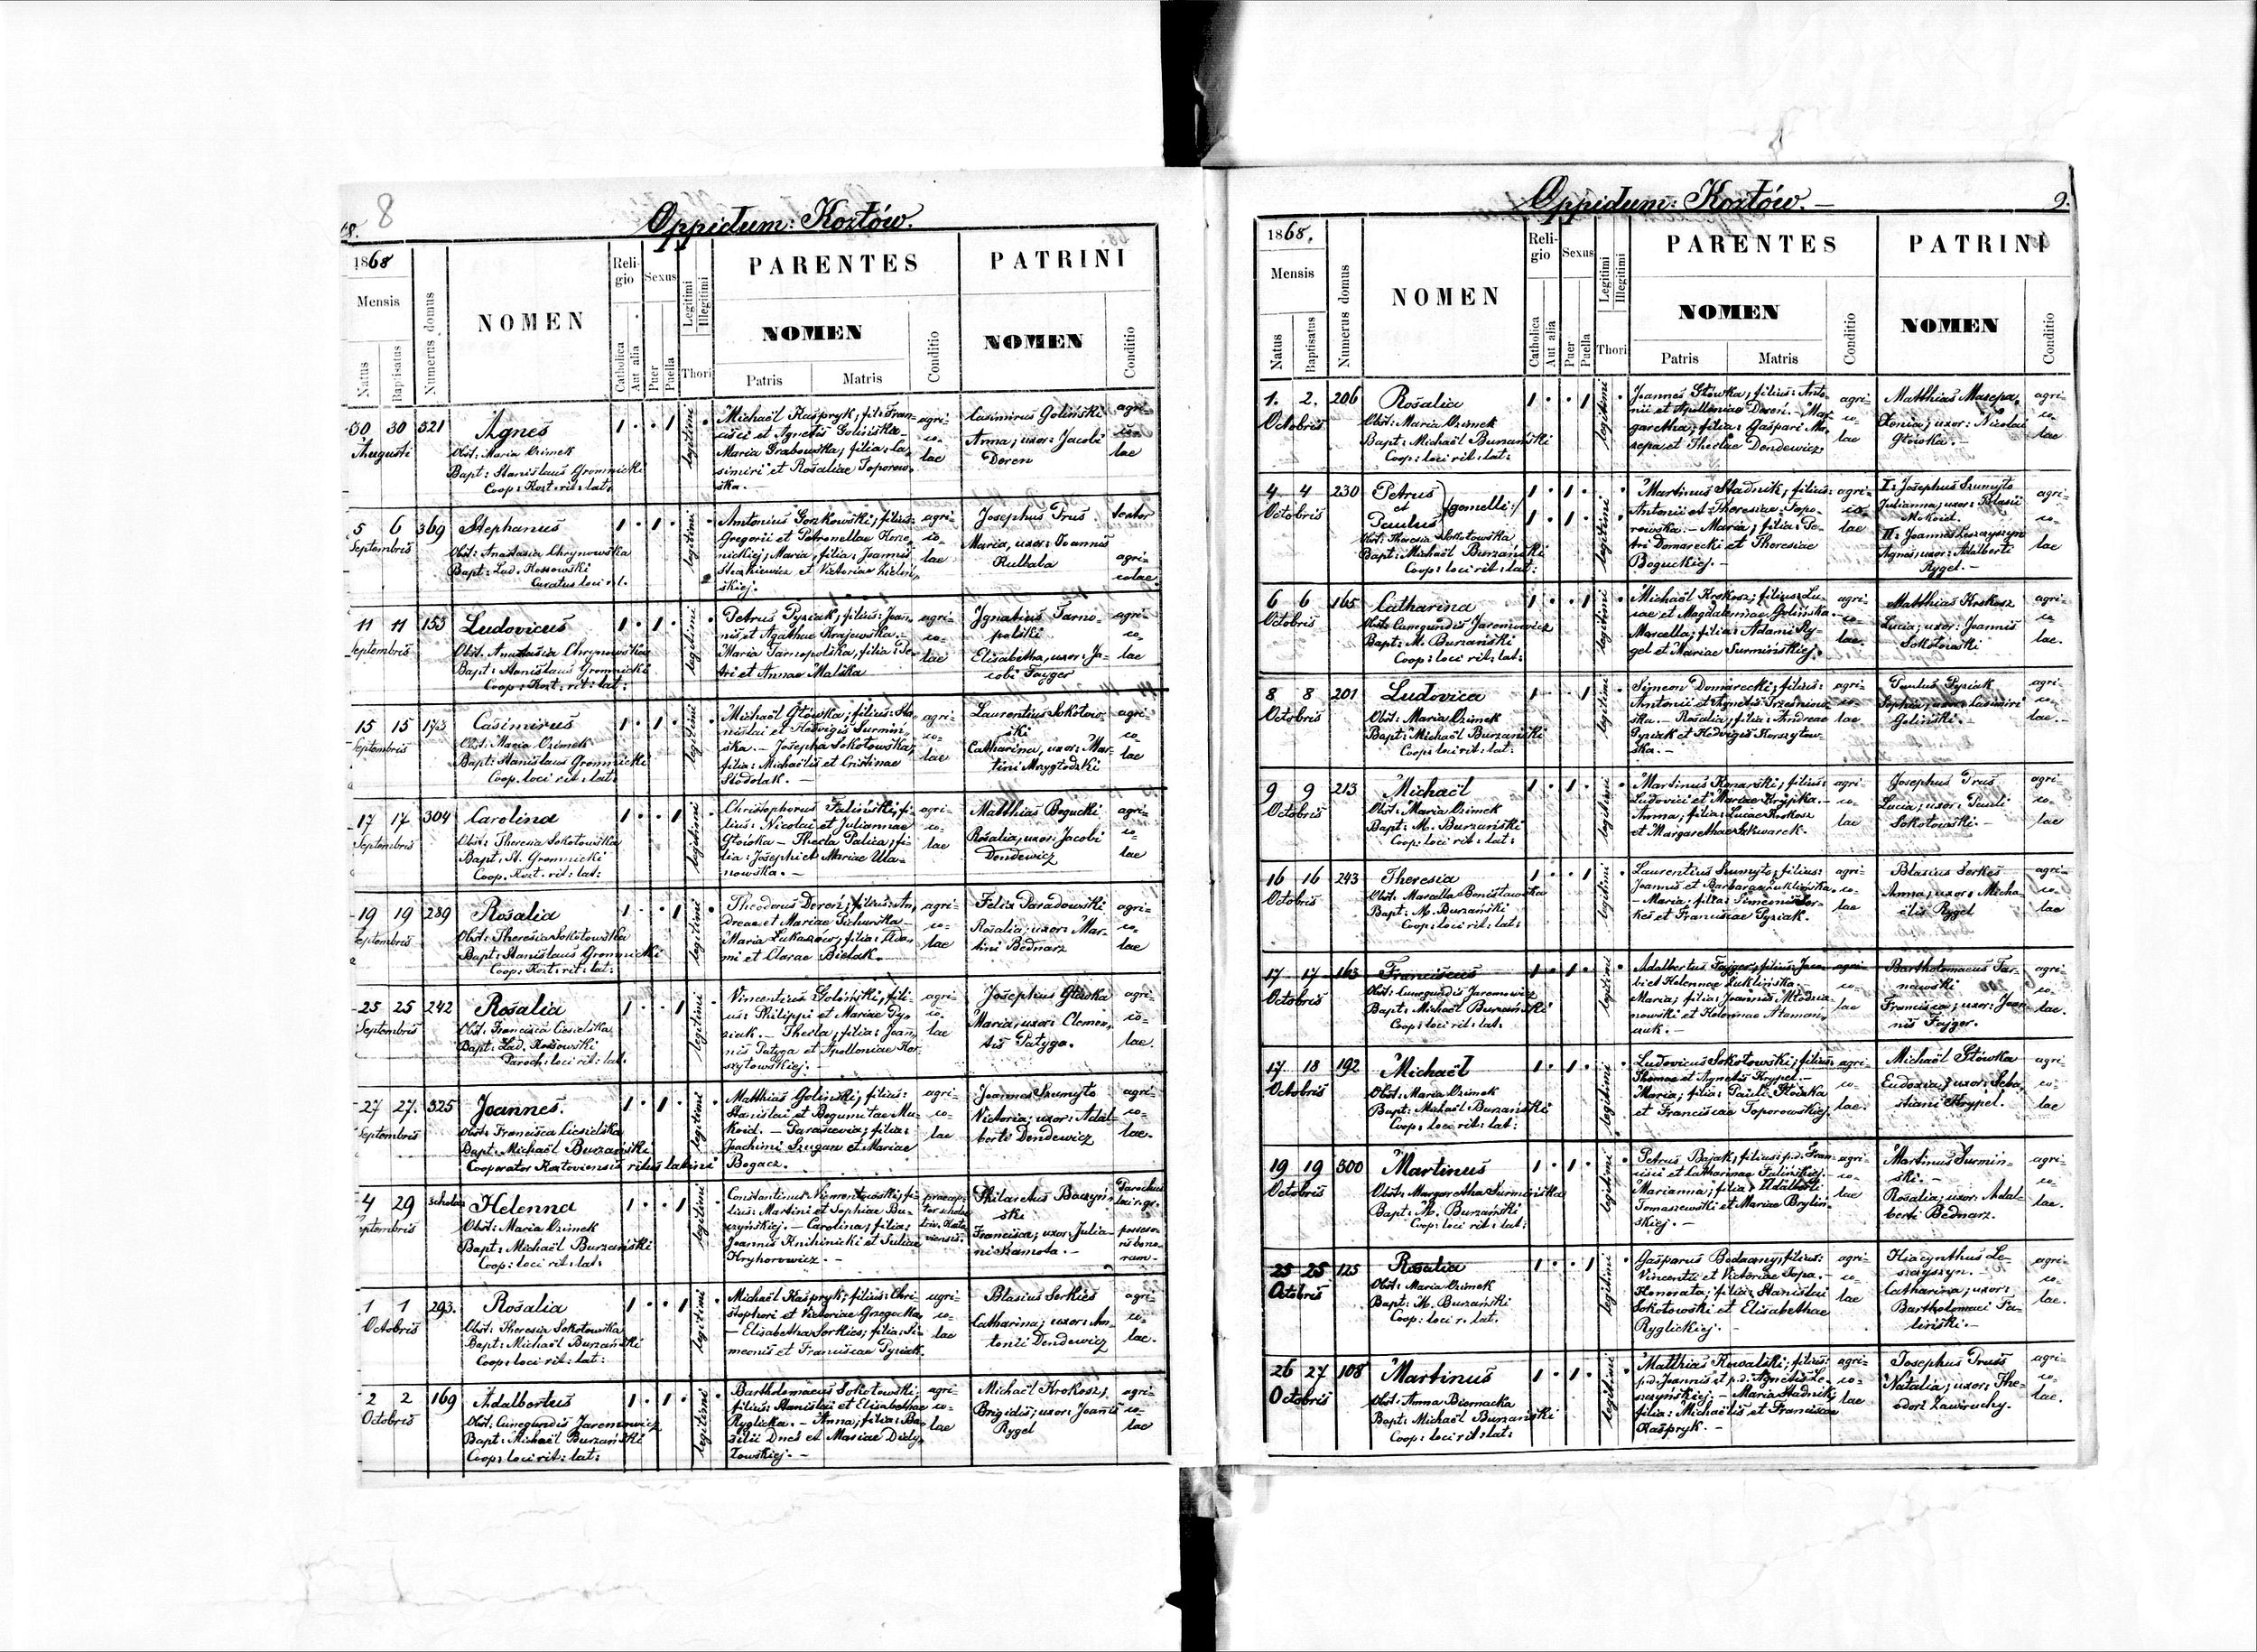 8
68.
Oppidum: Kozłów.
1868
Mensis
Natus
Baptisatus
Numerus domus
NOMEN
Religio
Catholica
Aut alia
Sexus
Puer
Puella
Legitimi
Illegitimi
Thori
PARENTES
NOMEN
Patris
Matris
Conditio
PATRINI
NOMEN
Conditio
30 30 321 Agnes
Augusti
Obst: Maria Ozimek
Bapt: Stanislaus Gromnicki
Coop: Kozt. rit: lat:
legitimi
Michaël Kaspryk, fil: Fran-
cisci et Agnetis Golińska
Maria Grabowska, filia: Ca-
simiri et Rosaliae Toporow-
ska.
agri-
co-
lae
Casimirus Goliński
Anna; uxor: Jacobi
Deren
agri-
co-
lae
5 6 369 Stephanus
Septembris
Obst: Anastasia Chrynowska
Bapt: Lud. Kossowski
Curatus loci r. l.
legitimi
Antonius Gorzkowski, filius:
Gregorii et Petronellae
Maria, filia: Joannis
et Victoriae
agri-
co-
lae
Josephus Prus
Maria, uxor: Joannis
Kulbaba
agri-
colae
11 11 153 Ludovicus
Septembris
Obst. Anastasia Chrynowska
Bapt: Stanislaus Gromnicki
Coop: Kozt: rit: lat:
legitimi
Petrus Pyziak, filius: Joan-
nis et Agathae Krajewska.
Maria Tarnopolska, filia: Pe-
tri et Annae Malska
agri-
co-
lae
Ignatius Tarno-
polski
Elisabetha, uxor: Ja-
cobi Fayger
agri-
co-
lae
15 15 173 Casimirus
Septembris
Obst: Maria Ozimek
Bapt: Stanislaus Gromnicki
Coop. loci rit: lat:
legitimi
Michaël Głowka; filius: Sta-
nislai et Hedvigis Surmin-
ska. - Josepha Sokołowska,
filia: Michaëlis et Cristinae
Stodolak. -
agri-
co-
lae
Laurentius Sokołow-
ski
Catharina, uxor: Mar-
tini Mrygłodzki
agri-
co-
lae
17 17 304 Carolina
Septembris
Obst: Theresia Sokołowska
Bapt. St. Gromnicki
Coop. Kozt. rit: lat:
legitimi
Christophorus Faliński, fi-
lius: Nicolai et Juliannae
Głowka - Thecla Palica; fi-
lia: Josephi et Mariae Ula-
nowska. -
agri-
co-
lae
Matthias Bogucki
Rosalia, uxor: Jacobi
Dendewicz
agri-
co-
lae
19 19 289 Rosalia
Septembris
Obst: Theresia Sokołowska
Bapt: Stanislaus Gromnicki
Coop: Kozt: rit: lat:
legitimi
Theodorus Deren; filius: An-
dreae et Mariae
Maria filia: Ada-
mi et Clarae Bielak.
agri-
co-
lae
Felix Paradowski
Rosalia; uxor: Mar-
tini Bednarz
agri-
co-
lae
25 25 242 Rosalia
Septembris
Obst: Francisca Ciesielska
Bapt: Lud. Kossowski
Paroch: loci rit: lat:
legitimi
Vincentius Goliński, fili-
us: Philippi et Mariae Py-
ziak. - Thecla; filia: Joan-
nis Patyga et Apolloniae Kor-
szytowskiej. -
agri-
co-
lae
Josephus Głowka
Maria, uxor: Clemen-
tis Patyga.
agri-
co-
lae.
27 27. 325 Joannes.
Septembris
Obst: Francisca Ciesielska
Bapt: Michaël Burzański
Cooperator Koztoviensis ritus latini
legitimi
Matthias Goliński, filius:
Stanislai et Bogumilae Mu-
koid. - Parascevia; filia:
Joachimi et Mariae
Bogacz.
agri-
co-
lae
Joannes Szumyto
Victoria; uxor: Adal-
berti Dendewicz
agri-
co-
lae.
4 29 schola Helenna
Septembris
Obst: Maria Ozimek
Bapt: Michaël Burzański
Coop: loci rit: lat:
legitimi
Constantinus fi-
lius: Martini et Sophiae
Carolina; filia:
Joannis Knihinicki et Juliae
Hryhorowicz. -
Philaretus Baczyń-
ski
Francisca; uxor: Julia-
ni Kamota. -
Parochus
loci r. gr.
possesso-
ris bono-
rum.
1 1 293. Rosalia
Octobris
Obst: Theresia Sokołowska
Bapt: Michaël Burzański
Coop: loci rit: lat:
legitimi
Michaël Kaspryk; filius: Chri-
stophori et Victoriae Grzegocka
- Elisabetha Serkies; filia: Si-
meonis et Franciscae Pyziak.
agri-
co-
lae
Blasius Serkies
Catharina; uxor: An-
tonii Dendewicz
agri-
co-
lae.
2 2 169 Adalbertus
Octobris
Obst: Cunegundis Jaremowicz
Bapt: Michaël Burzański
Coop: loci rit: lat:
legitimi
Bartholomaeus Sokołowski;
filius: Stanislai et Elisabethae
Ryglicka. - Anna; filia: Ba-
silii et Mariae Didy-
towskiej. -
agri-
co-
lae
Michaël Krokosz,
Brigidis; uxor: Joannis
Rygel
agri-
co-
lae
Oppidum: Kozłów. -
9.
1868.
Mensis
Natus
Baptisatus
Numerus domus
NOMEN
Religio
Catholica
Aut alia
Sexus
Puer
Puella
Legitimi
Illegitimi
Thori
PARENTES
NOMEN
Patris
Matris
Conditio
PATRINI
NOMEN
Conditio
1. 2. 206 Rosalia
Octobris
Obst: Maria Ozimek
Bapt: Michaël Burzański
Coop: loci rit: lat:
legitimi
Joannes Głowka, filius: Anto-
nii et Apolloniae Deren. - Mar-
garetha, filia: Gaspari Ma-
zepa et Theclae Dendewicz
agri-
co-
lae
Matthias Mazepa,
Xenia; uxor: Nicolai
Głowka. -
agri-
co-
lae
4 4 230 Petrus
Octobris
et
Paulus /gemelli:/
Obst: Theresia Sokołowska
Bapt: Michaël Burzański
Coop: loci rit: lat:
legitimi
Martinus Stadnik, filius:
Antonii et Theresiae Topo-
rowska. - Maria; filia: Pe-
tri Domarecki et Theresiae
Boguckiej. -
agri-
co-
lae
I: Josephus Szumyto
Julianna; uxor: Blasii
Mokoid.
II: Joannes Leszczyszyn
Agnes; uxor: Adalberti
Rygel. -
agri-
co-
lae
6 6 165 Catharina
Octobris
Obst: Cunegundis Jaremowicz
Bapt: M. Burzański
Coop: loci rit: lat:
legitimi
Michaël Krokosz; filius: Lu-
cae et Magdalennae Golińska.
Marcella; filia: Adami Ry-
gel et Mariae Surmińskiej.
agri-
co-
lae.
Matthias Krokosz
Lucia; uxor: Joannis
Sokołowski
agri-
co-
lae.
8 8 201 Ludovica
Octobris
Obst: Maria Ozimek
Bapt: Michaël Burzański
Coop: loci rit: lat:
legitimi
Simeon Domarecki; filius:
Antonii et Agnetis Trześniow-
ska. - Rosalia; filia: Andreae
Pyziak et Hedvigis Korszytow-
ska. -
agri-
co-
lae
Paulus Pyziak
Sophia; uxor: Casimiri
Goliński. -
agri-
co-
lae.
9 9 213 Michaël
Octobris
Obst: Maria Ozimek
Bapt: M. Burzański
Coop: loci rit: lat:
legitimi
Martinus Konarski; filius:
Ludovici et Mariae Krypka. -
Anna; filia: Lucae Krokosz
et Margarethae Skwarek.
agri-
co-
lae
Josephus Prus
Lucia; uxor: Pauli
Sokołowski. -
agri-
co-
lae
16 16 243 Theresia
Octobris
Obst: Marcella Bonisławska
Bapt: M. Burzański
Coop: loci rit: lat:
legitimi
Laurentius Szumyto; filius:
Joannis et Barbarae Suklińska.
- Maria; filia: Simeonis Ser-
kes et Franciscae Pyziak.
agri-
co-
lae
Blasius Serkes
Anna; uxor: Micha-
ëlis Rygel
agri-
co-
lae
17 17 163 Franciscus
Octobris
Obst: Cunegundis Jaremowicz
Bapt: Michaël Burzański
Coop: loci rit: lat:
legitimi
Adalbertus Fajger; filius: Jaco-
bi et Helennae Suklińska. -
Maria; filia: Joannis
et Helennae Ataman-
czuk. -
agri-
co-
lae
Bartholomaeus Tar-
nawski
Francisca; uxor: Joan-
nis Fajger.
agri-
co-
lae.
17 18 192 Michaël
Octobris
Obst: Maria Ozimek
Bapt: Michaël Burzański
Coop: loci rit: lat:
legitimi
Ludovicus Sokołowski; filius:
Thomae et Agnetis Krypel. -
Maria; filia: Pauli Głowka
et Franciscae Toporowskiej.
agri-
co-
lae.
Michaël Głowka
Eudoxia; uxor: Seba-
stiani Krypel.
agri-
co-
lae
19 19 300 Martinus
Octobris
Obst: Margaretha Surmińska
Bapt: M. Burzański
Coop: loci rit: lat:
legitimi
Petrus Bajak; filius: p.d. Fran-
cisci et Catharinae Falińskiej.
Marianna; filia: Adalberti
Tomaszewski et Mariae Brylin-
skiej. -
agri-
co-
lae
Martinus Surmin-
ski. -
Rosalia; uxor: Adal-
berti Bednarz.
agri-
co-
lae.
25 25 125 Rosalia
Octobris
Obst: Maria Ozimek
Bapt: M. Burzański
Coop: loci r. lat.
legitimi
Gasparus Bednarz; filius:
Vincentii et Victoriae Sopa. -
Honorata; filia: Stanislai
Sokołowski et Elisabethae
Ryglickiej. -
agri-
co-
lae
Hiacynthus Le-
szczyszyn. -
Catharina; uxor:
Bartholomaei Fa-
liński. -
agri-
co-
lae.
26 27 108 Martinus
Octobris
Obst: Anna Biernacka
Bapt: Michaël Burzański
Coop: loci rit: lat:
legitimi
Matthias Kowalski; filius:
p.d. Joannis et p.d. Agnetis Le-
szczyńskiej. - Maria Stadnik;
filia: Michaëlis et Franciscae
Kaspryk. -
agri-
co-
lae
Josephus Pruss
Natalia; uxor: The-
odori Zawiruchy.
agri-
co-
lae.